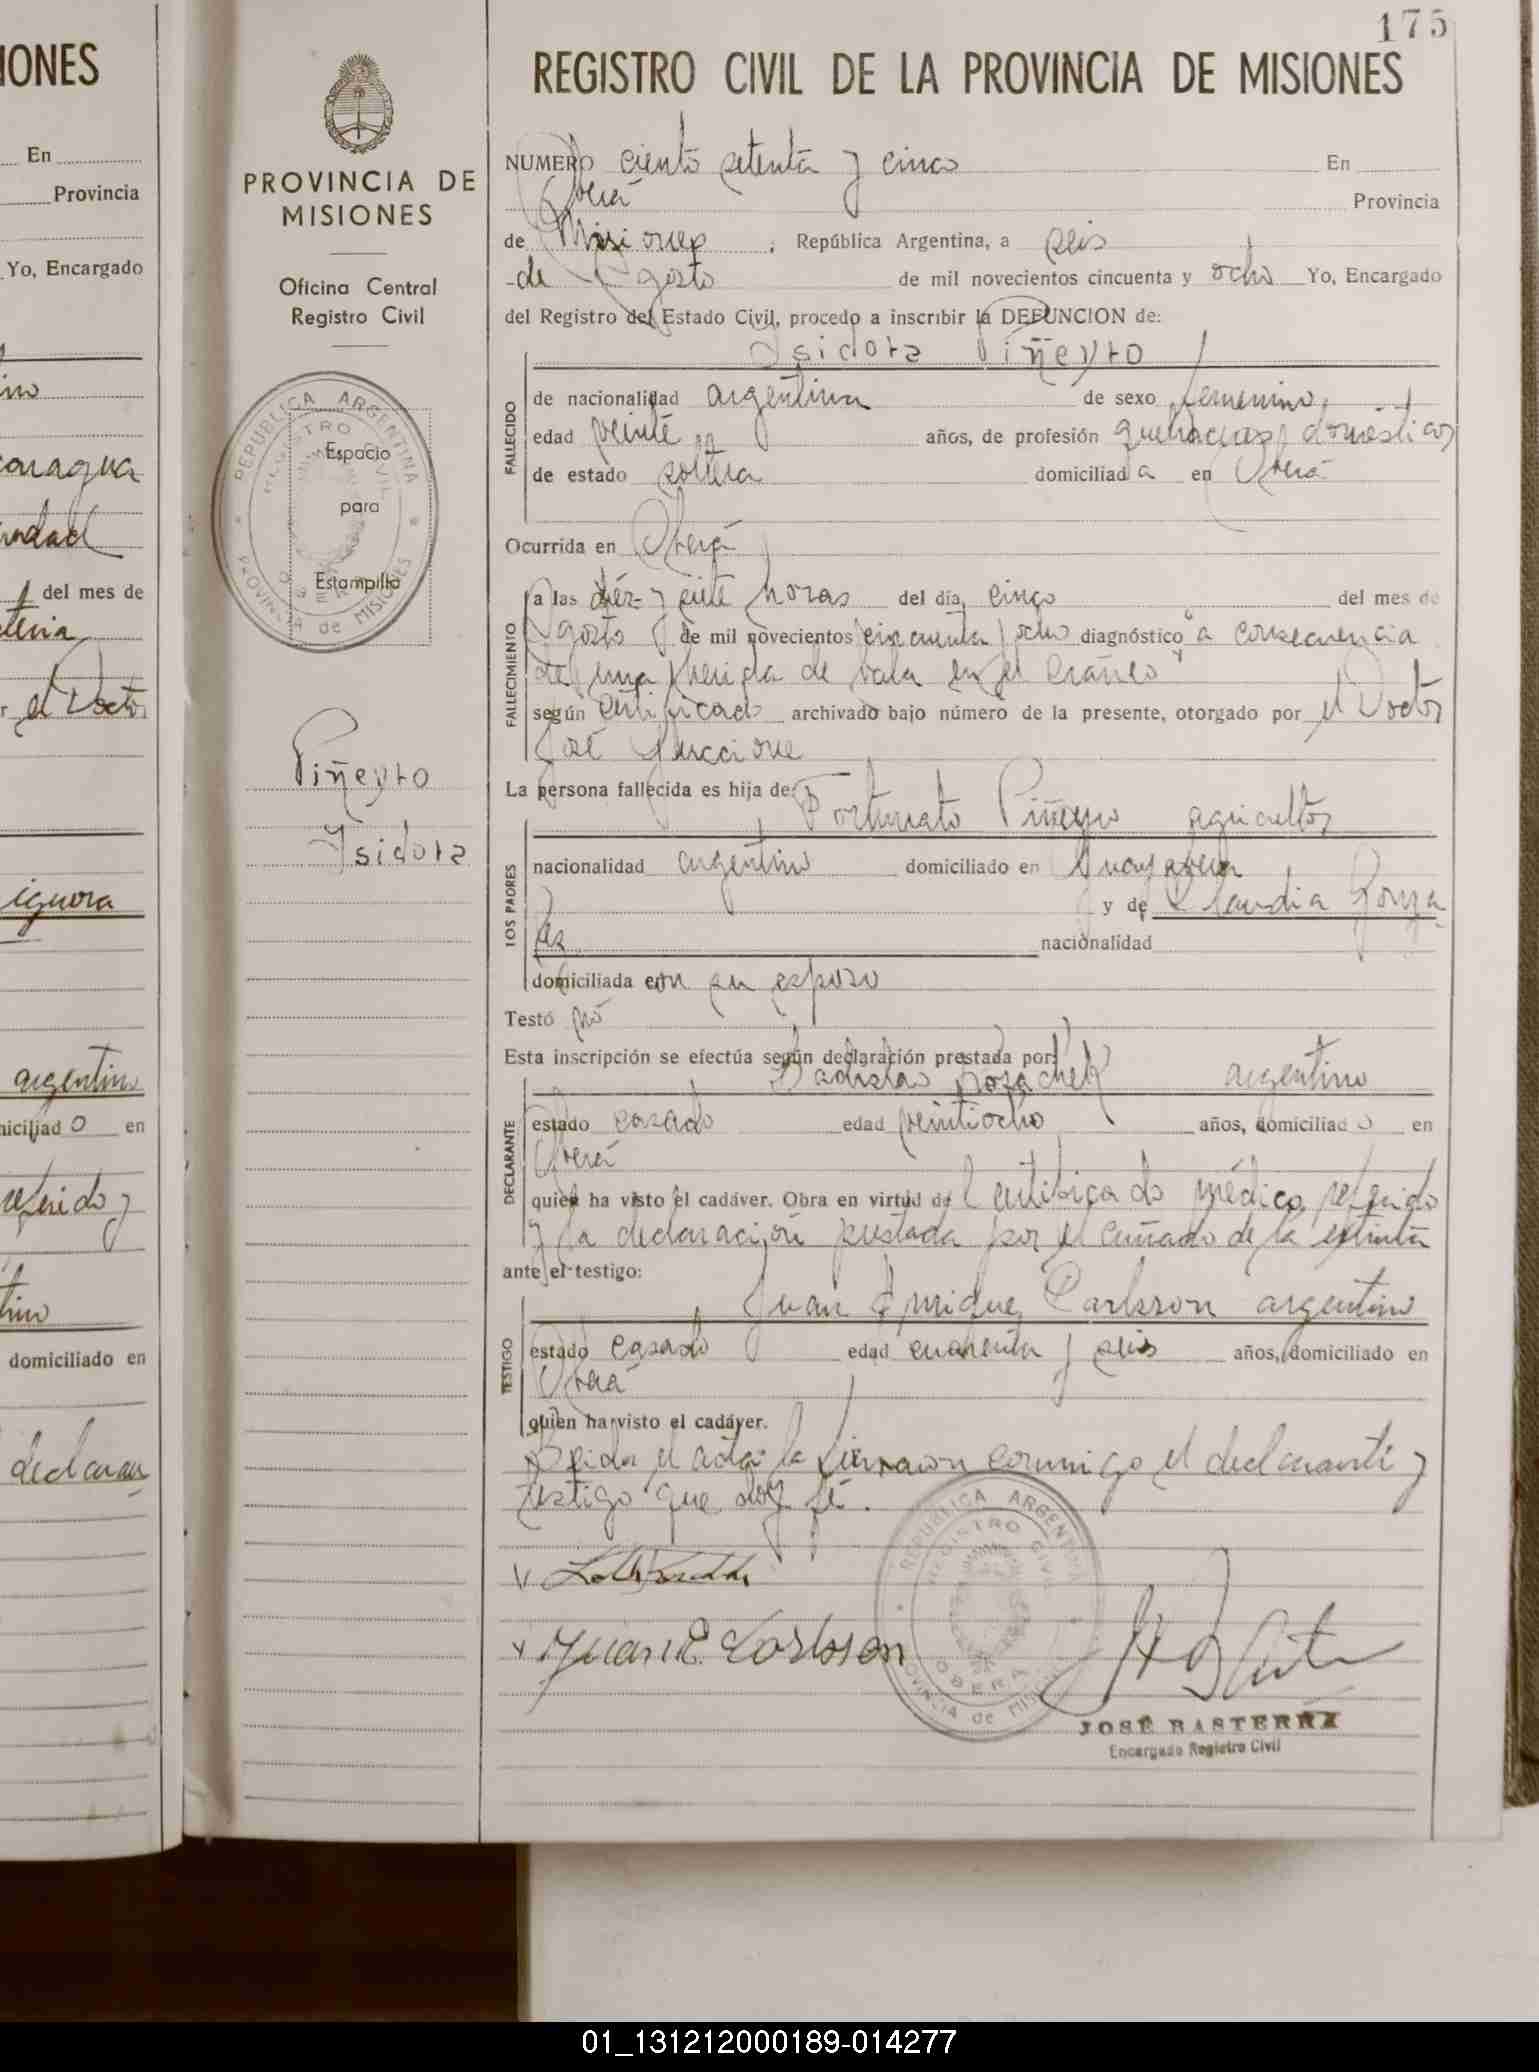 175
REGISTRO CIVIL DE LA PROVINCIA DE MISIONES
NUMERO ciento setenta y cinco En
Oberá Provincia
de Misiones, República Argentina, a seis
de Agosto de mil novecientos cincuenta y ocho Yo, Encargado
del Registro del Estado Civil, procedo a inscribir la DEFUNCION de:
Isidora Piñeyro
FALLECIDO
de nacionalidad argentina de sexo femenino,
edad veinte años, de profesión quehaceres domésticos
de estado soltera domiciliada en Oberá
Ocurrida en Oberá
FALLECIMIENTO
a las diez y siete horas del día cinco del mes de
Agosto de mil novecientos cincuenta y ocho diagnóstico "a consecuencia
de una herida de bala en el cráneo"
según certificado archivado bajo número de la presente, otorgado por el Doctor
José
La persona fallecida es hija de: Fortunato Piñeyro agricultor
LOS PADRES
nacionalidad argentino domiciliado en
y de Claudia Gonza-
lez nacionalidad
domiciliada con su esposo
Testó no
Esta inscripción se efectúa según declaración prestada por:
Ladislao argentino
DECLARANTE
estado casado edad veintiocho años, domiciliado en
Oberá
quien ha visto el cadáver. Obra en virtud del certificado médico referido
y la declaración prestada por el cuñado de la extinta
ante el testigo:
Juan Enrique Carlsson argentino
TESTIGO
estado casado edad cuarenta y seis años, domiciliado en
Oberá
quien ha visto el cadáver.
Leída el acta la firmaron conmigo el declarante y
testigo que doy fé.
Juan E. Carlsson
REPUBLICA ARGENTINA
REGISTRO CIVIL
OBERA
PROVINCIA de MISIONES
JOSÉ BASTERRA
Encargado Registro Civil
PROVINCIA DE
MISIONES
Oficina Central
Registro Civil
REPUBLICA ARGENTINA
REGISTRO CIVIL
PROVINCIA de MISIONES
Espacio
para
Estampilla
Piñeyro
Isidora
IONES
En
Provincia
Yo, Encargado
del mes de
el Doctor
ignora
argentino
domiciliado en
referido y
domiciliado en
declaran
01_131212000189-014277